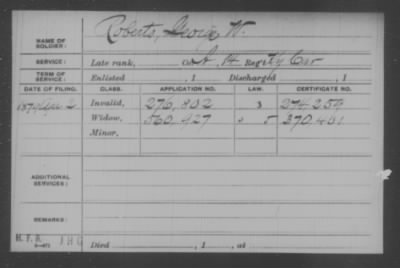 NAME OF SOLDIER: Roberts, George W.
SERVICE: Late rank, Co. A, 14 Reg't Ky Cav
TERM OF SERVICE: Enlisted , 1 Discharged , 1
DATE OF FILING. CLASS. APPLICATION NO. LAW. CERTIFICATE NO.
1879 Apr 2 Invalid, 276,802 3 274 254
Widow, 560,427 " 5 370,401
Minor,
ADDITIONAL SERVICES:
REMARKS:
Died , 1 , at